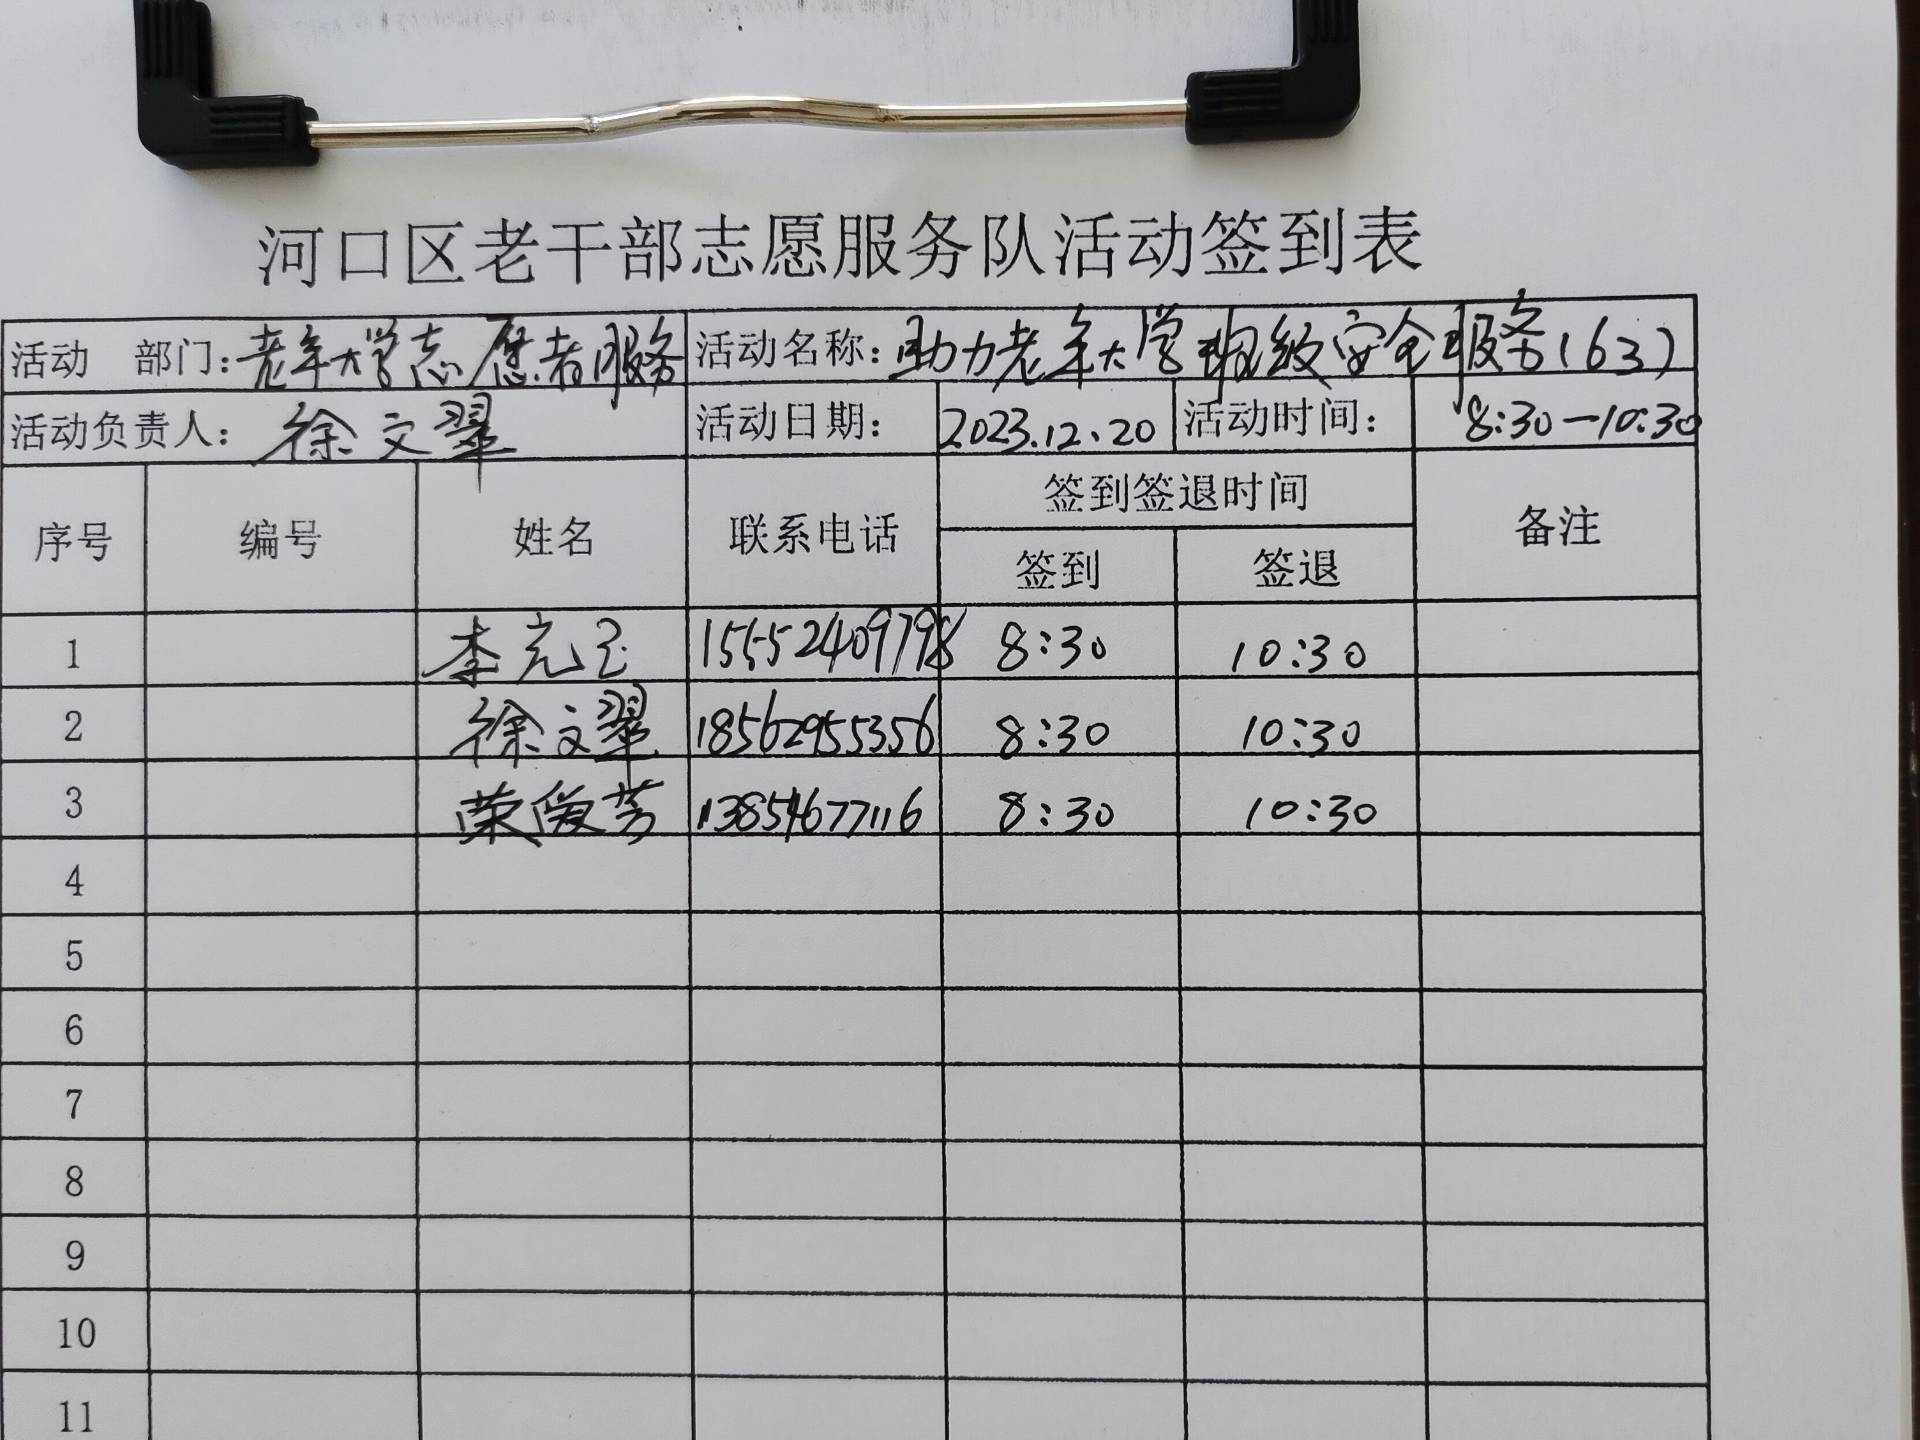 河口区老干部志愿服务队活动签到表
活动 部门:老年大学志愿者服务 活动名称:助力老年大学班级安全服务(63)
活动负责人: 徐文翠 活动日期: 2023.12.20 活动时间: 8:30—10:30
序号 编号 姓名 联系电话 签到签退时间 备注
签到 签退
1 李元玉 15552409798 8:30 10:30
2 徐文翠 18562955356 8:30 10:30
3 荣俊芳 13854677116 8:30 10:30
4
5
6
7
8
9
10
11